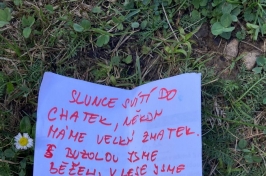 SLUNCE SVÍTÍ DO
CHATEK, NĚKDY
MÁME VELKÝ ZMATEK.
S BUZOLOU JSME
BĚŽELI, V LESE JSME